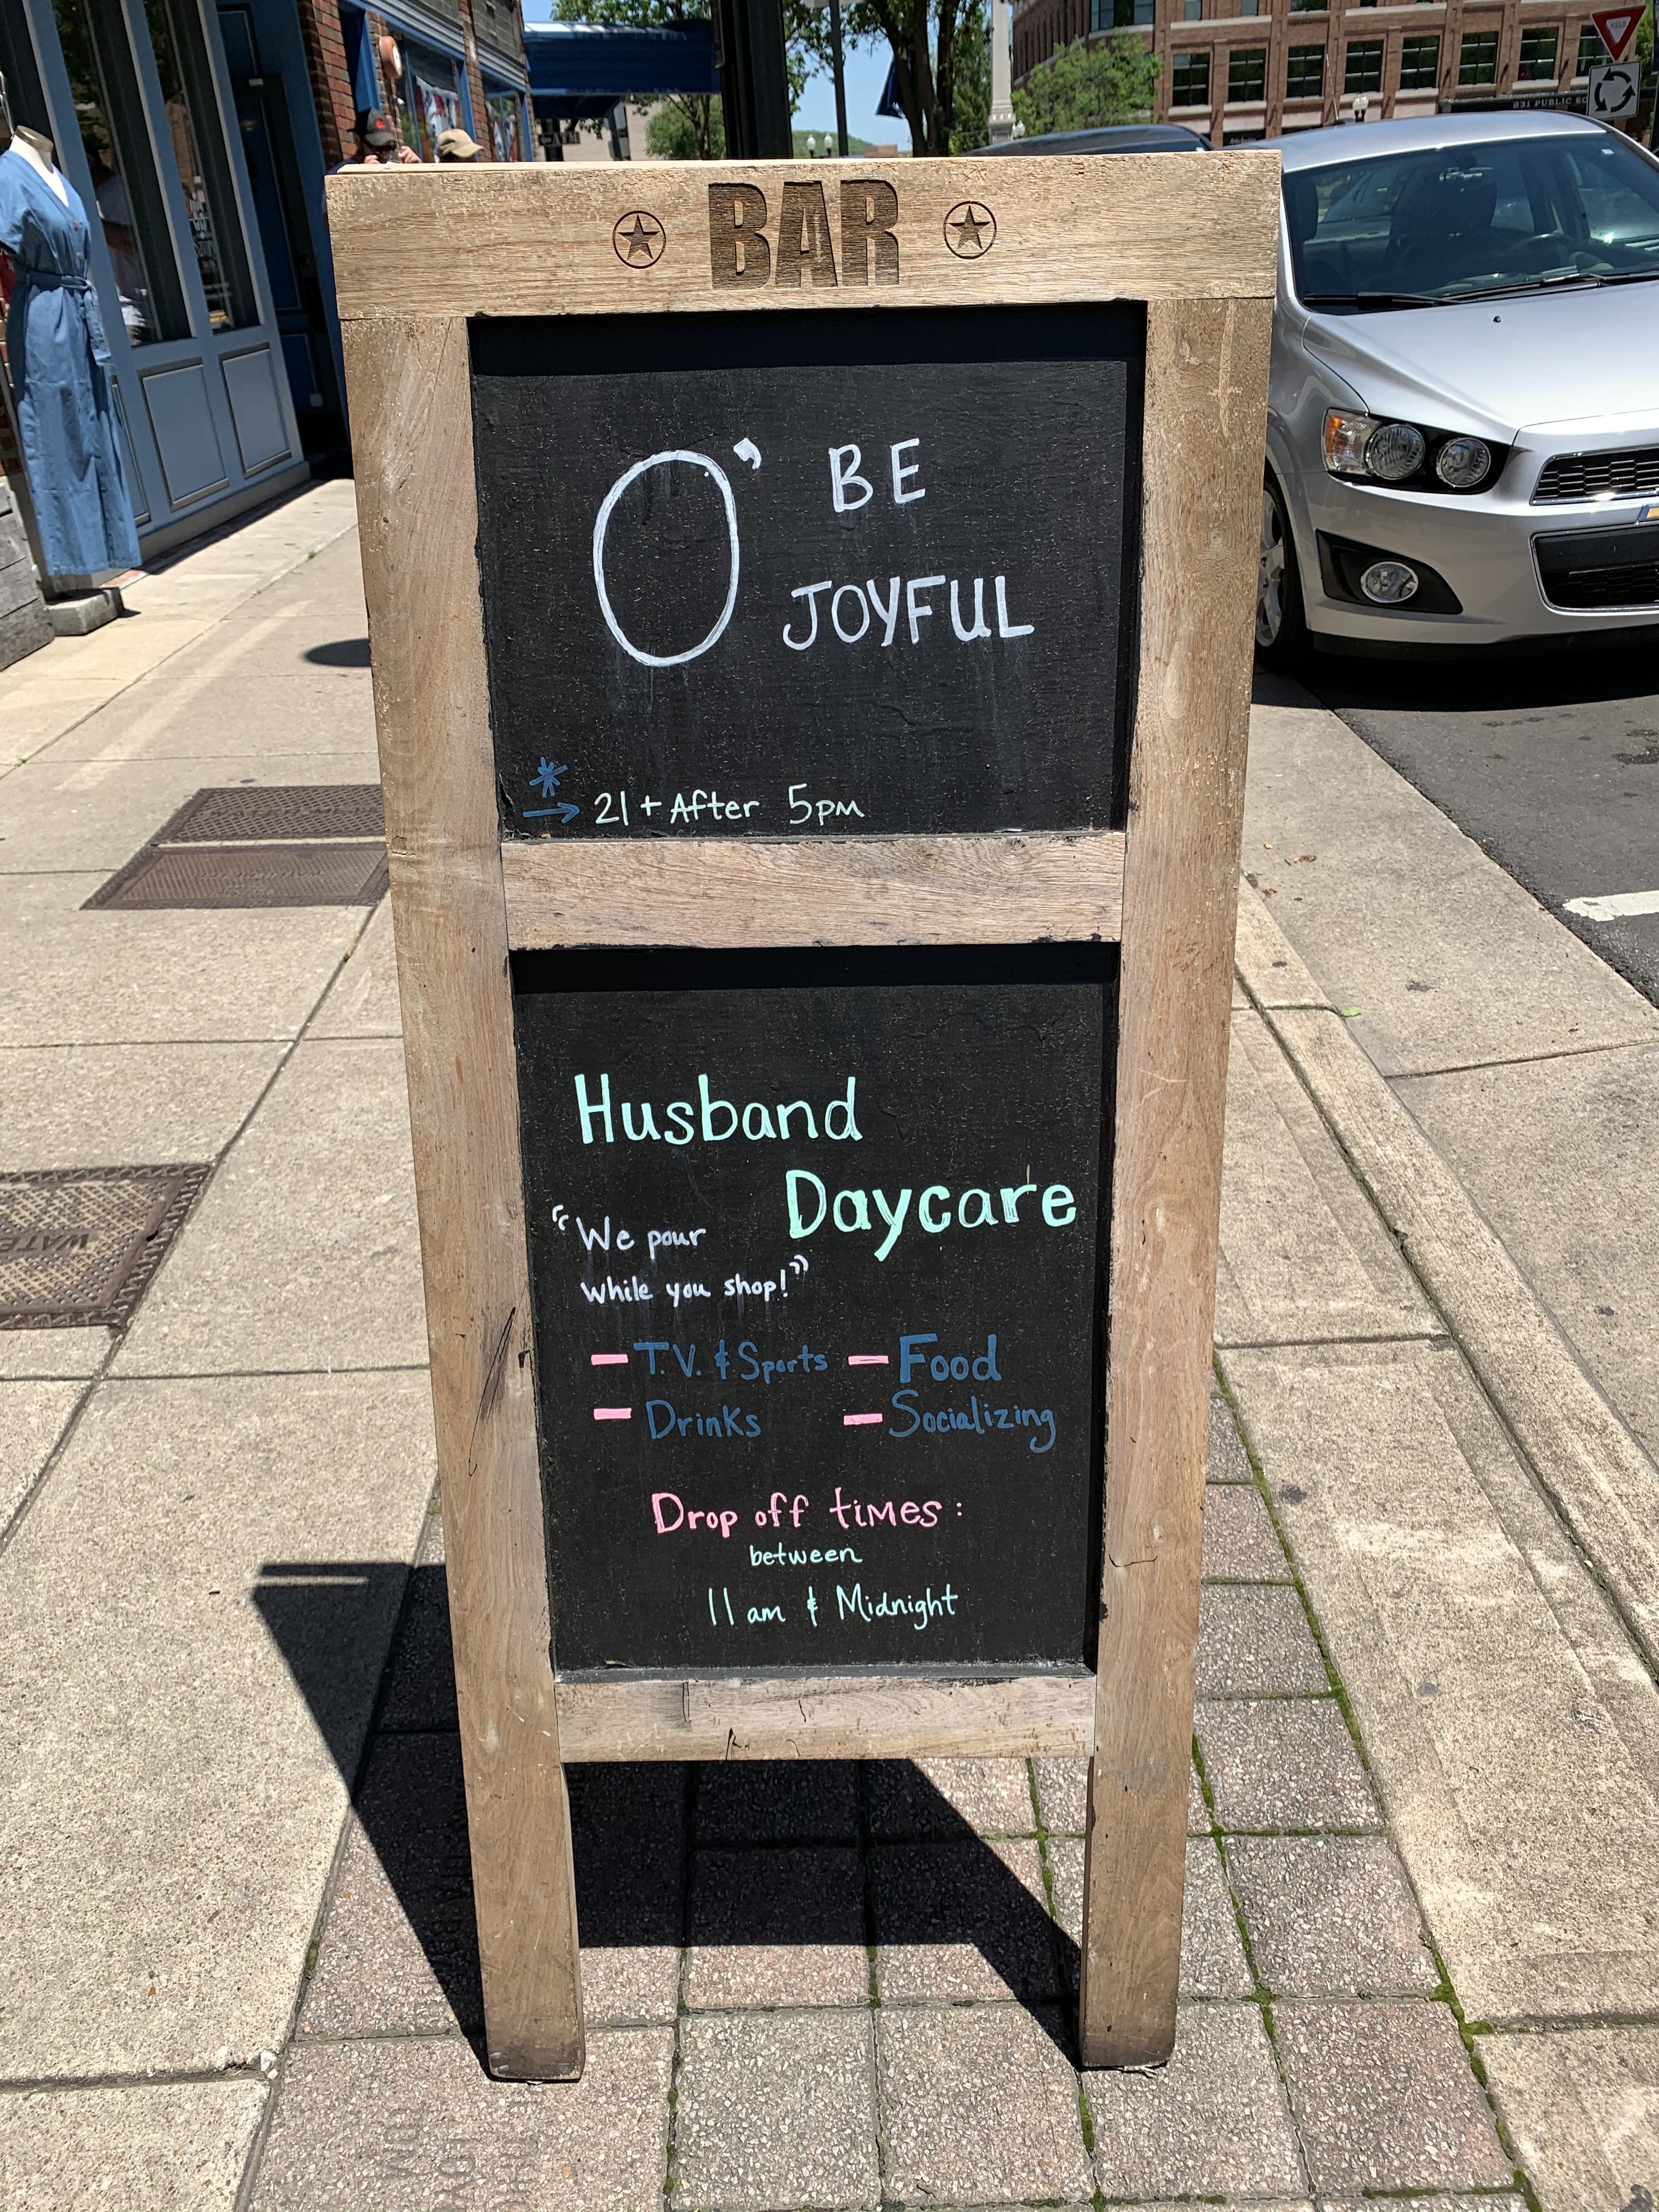 BAR
O' BE
JOYFUL
* → 21+ After 5pm
Husband
Daycare
"We pour
while you shop!"
- T.V. & Sports - Food
- Drinks - Socializing
Drop off times:
between
11 am & Midnight
YIELD
WATE